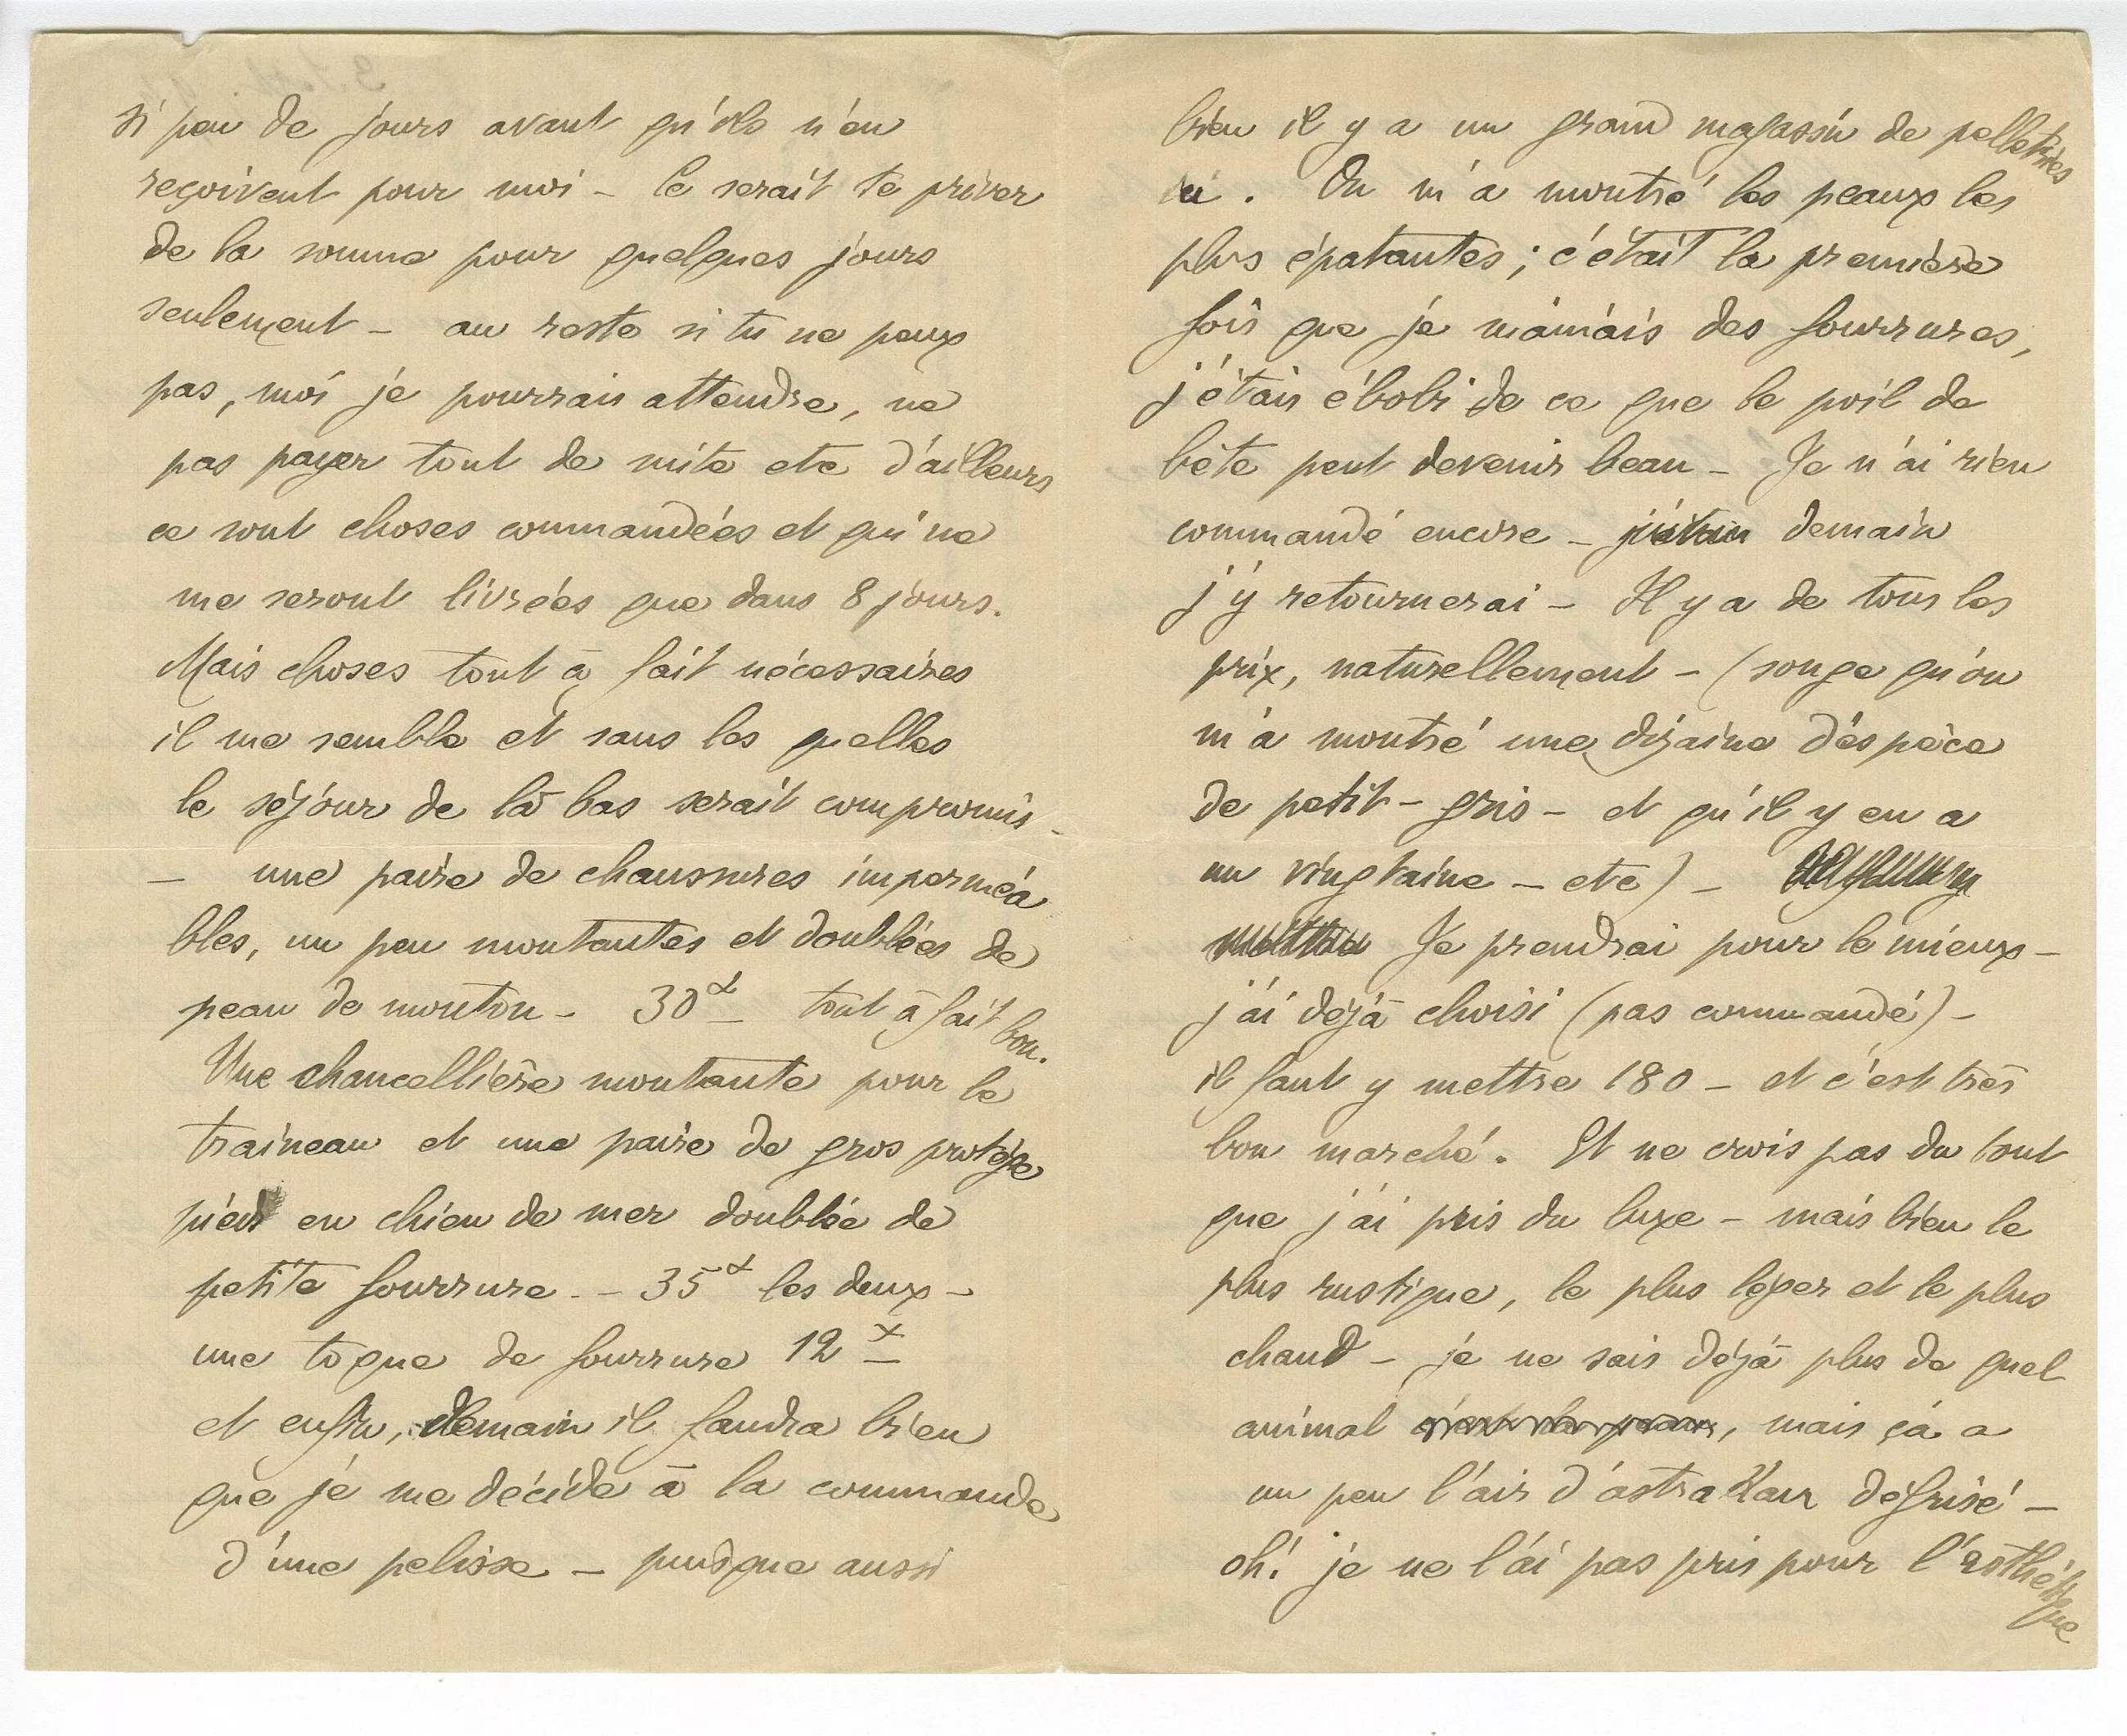 si peu de jours avant qu'ils n'en
reçoivent pour moi – Ce serait te priver
de la somme pour quelques jours
seulement – au reste si tu ne peux
pas, moi je pourrais attendre, ne
pas payer tout de suite etc d'ailleurs
ce sont choses commandées et qui ne
me seront livrées que dans 8 jours.
Mais choses tout à fait nécessaires
il me semble et sans les quelles
le séjour de là bas serait compromis –
– une paire de chaussures imperméa
bles, un peu montantes et doublées de
peau de mouton – 30 tout à fait bon.
Une chancellière montante pour le
traineau et une paire de gros protège
pieds en chien de mer doublée de
petite fourrure – 35 les deux –
une toque de fourrure 12
et enfin, demain il faudra bien
que je me décide à la commande
d'une pelisse – puisque aussi
bien il y a un grand magasin de pelleteries
ici. On m'a montré les peaux les
plus épatantes; c'était la première
fois que je maniais des fourrures,
j'étais ébobi de ce que le poil de
bête peut devenir beau – Je n'ai rien
commandé encore – demain
j'y retournerai – Il y a de tous les
prix, naturellement – (songe qu'on
m'a montré une dizaine d'espèce
de petit-gris – et qu'il y en a
un vingtaine – etc) –
Je prendrai pour le mieux –
j'ai déjà choisi (pas commandé) –
il faut y mettre 180 – et c'est très
bon marché. Et ne crois pas du tout
que j'ai pris du luxe – mais bien le
plus rustique, le plus léger et le plus
chaud – je ne sais déjà plus de quel
animal c'est la peau, mais çà a
un peu l'air d'astrakan défrisé –
oh! je ne l'ai pas pris pour l'esthétique